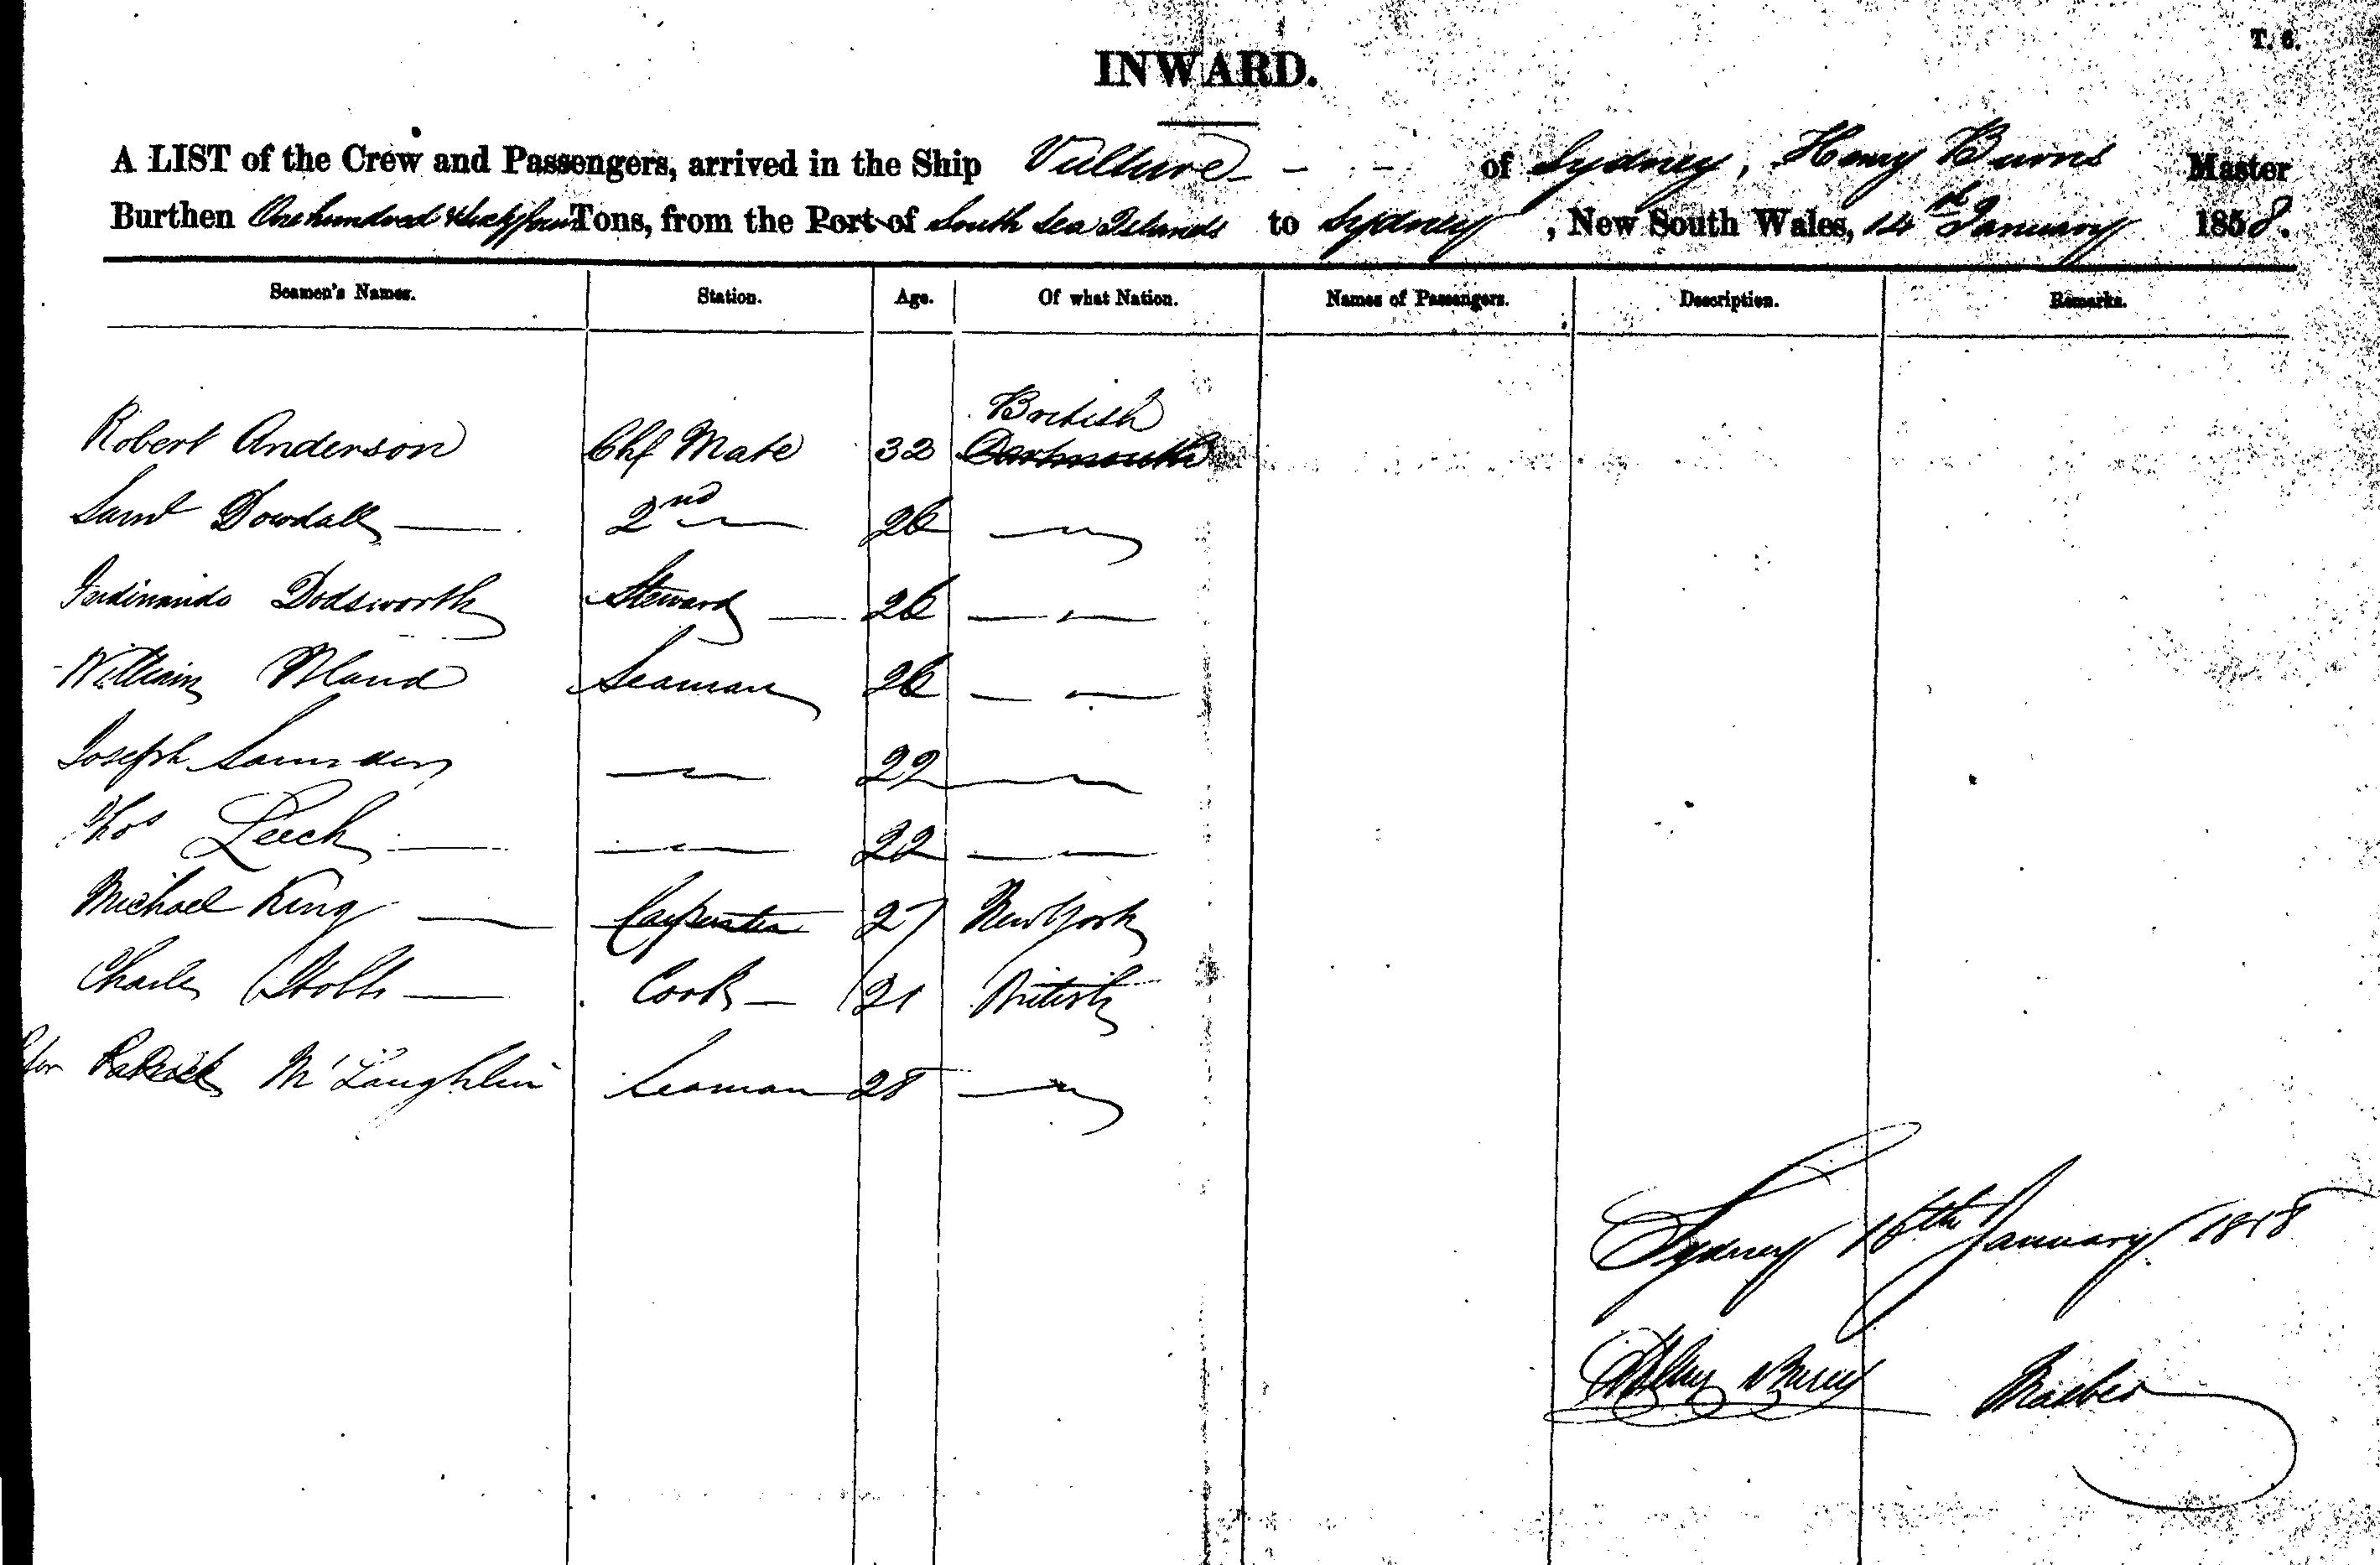 T. 6.
INWARD.
A LIST of the Crew and Passengers, arrived in the Ship Vulture - - of Sydney, Henry Burns Master
Burthen One hundred & Tons, from the Port of South Sea Islands to Sydney, New South Wales, 14th January 1858.
Seamen's Names. Station. Age. Of what Nation. Names of Passengers. Description. Remarks.
British
Robert Anderson Chf Mate 32 Dartmouth
Saml Dowdall — 2nd — 26 —
Ferdinando Dodsworth Steward — 26 — —
William Bland Seaman 26 — —
Joseph Saunders — 22 —
Thos Leech — — 22 — —
Michael King — Carpenter 27 New York
Charles Stobbs — Cook — 21 British
Patrick McLaughlin Seaman 28 —
Sydney 16th January 1858
Henry Burns Master